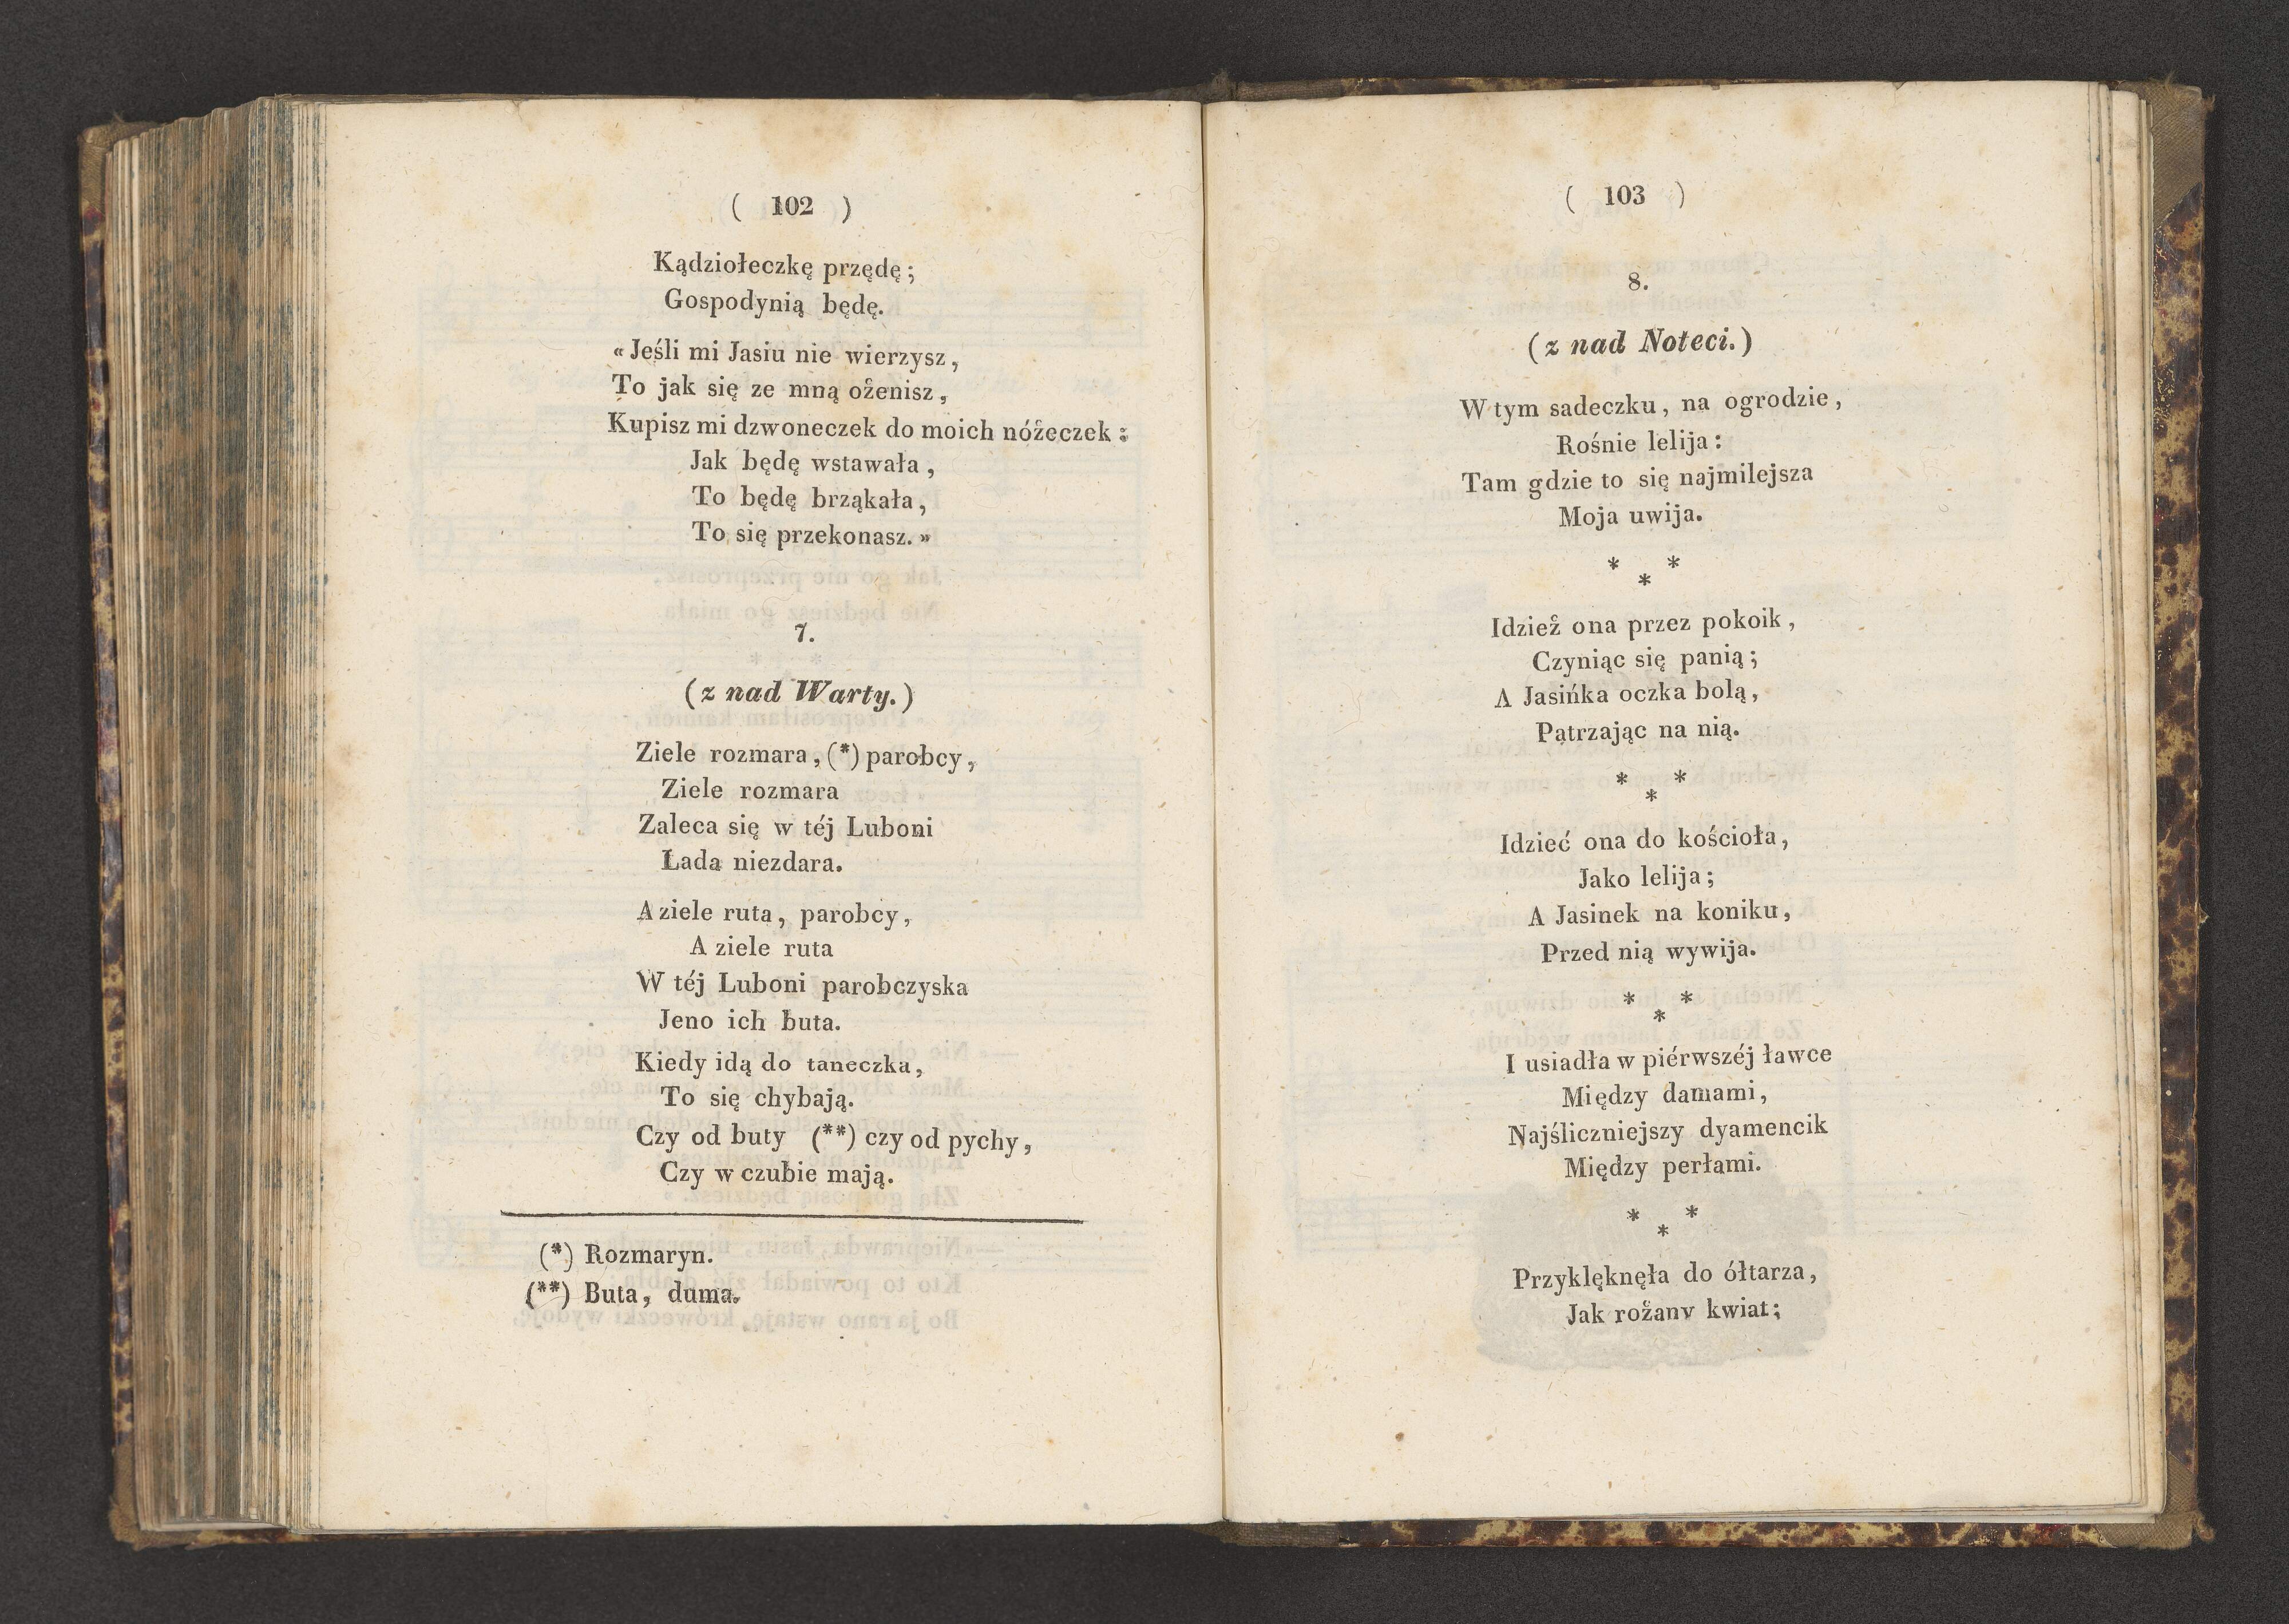 ( 102 )
Kądziołeczkę przędę;
Gospodynią będę.
«Jeśli mi Jasiu nie wierzysz,
To jak się ze mną ożenisz,
Kupisz mi dzwoneczek do moich nóżeczek:
Jak będę wstawała,
To będę brząkała,
To się przekonasz.»
7.
(z nad Warty.)
Ziele rozmara, (*) parobcy,
Ziele rozmara
Zaleca się w téj Luboni
Lada niezdara.
A ziele ruta, parobcy,
A ziele ruta
W téj Luboni parobczyska
Jeno ich buta.
Kiedy idą do taneczka,
To się chybają.
Czy od buty (**) czy od pychy,
Czy w czubie mają.
(*) Rozmaryn.
(**) Buta, duma.
( 103 )
8.
(z nad Noteci.)
W tym sadeczku, na ogrodzie,
Rośnie lelija:
Tam gdzie to się najmilejsza
Moja uwija.
* * *
Idzież ona przez pokoik,
Czyniąc się panią;
A Jasińka oczka bolą,
Patrzając na nią.
* * *
Idzieć ona do kościoła,
Jako lelija;
A Jasinek na koniku,
Przed nią wywija.
* * *
I usiadła w piérwszéj ławce
Między damami,
Najśliczniejszy dyamencik
Między perłami.
* * *
Przyklęknęła do ółtarza,
Jak rożany kwiat;